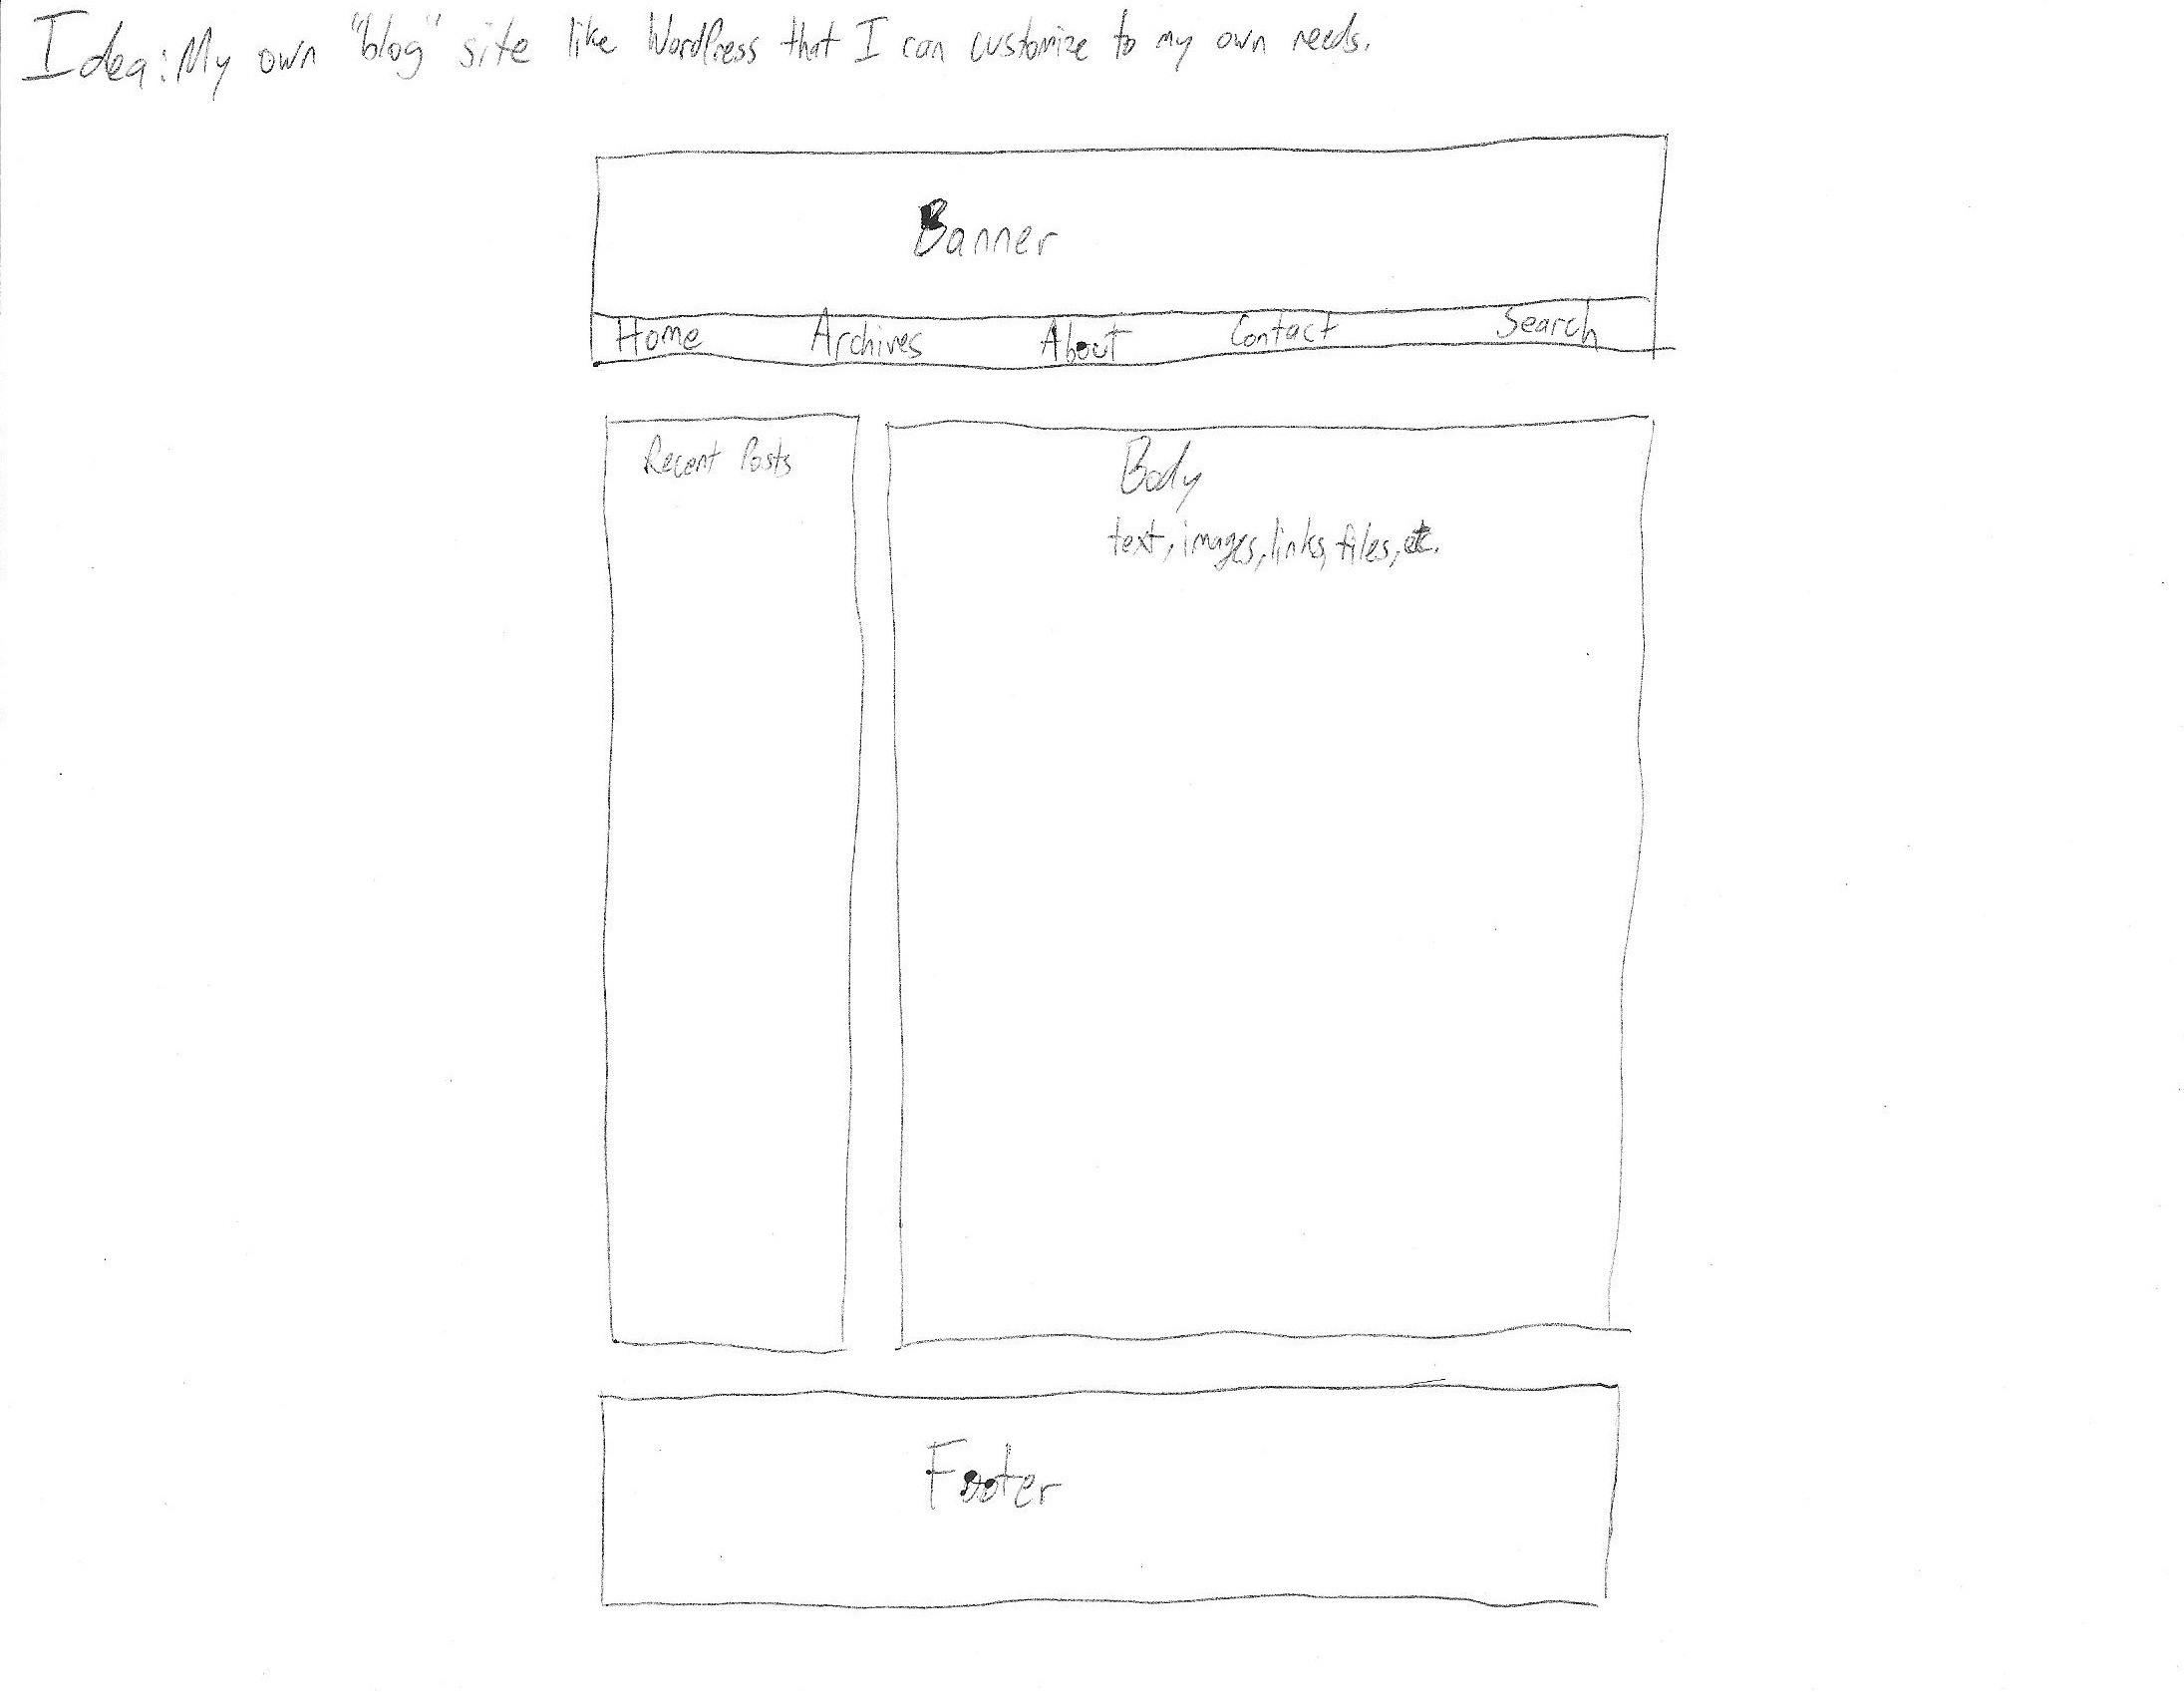 Idea: My own "blog" site like WordPress that I can customize to my own needs.
Banner
Home Archives About Contact Search
Recent Posts
Body
text, images, links, files, etc.
Footer